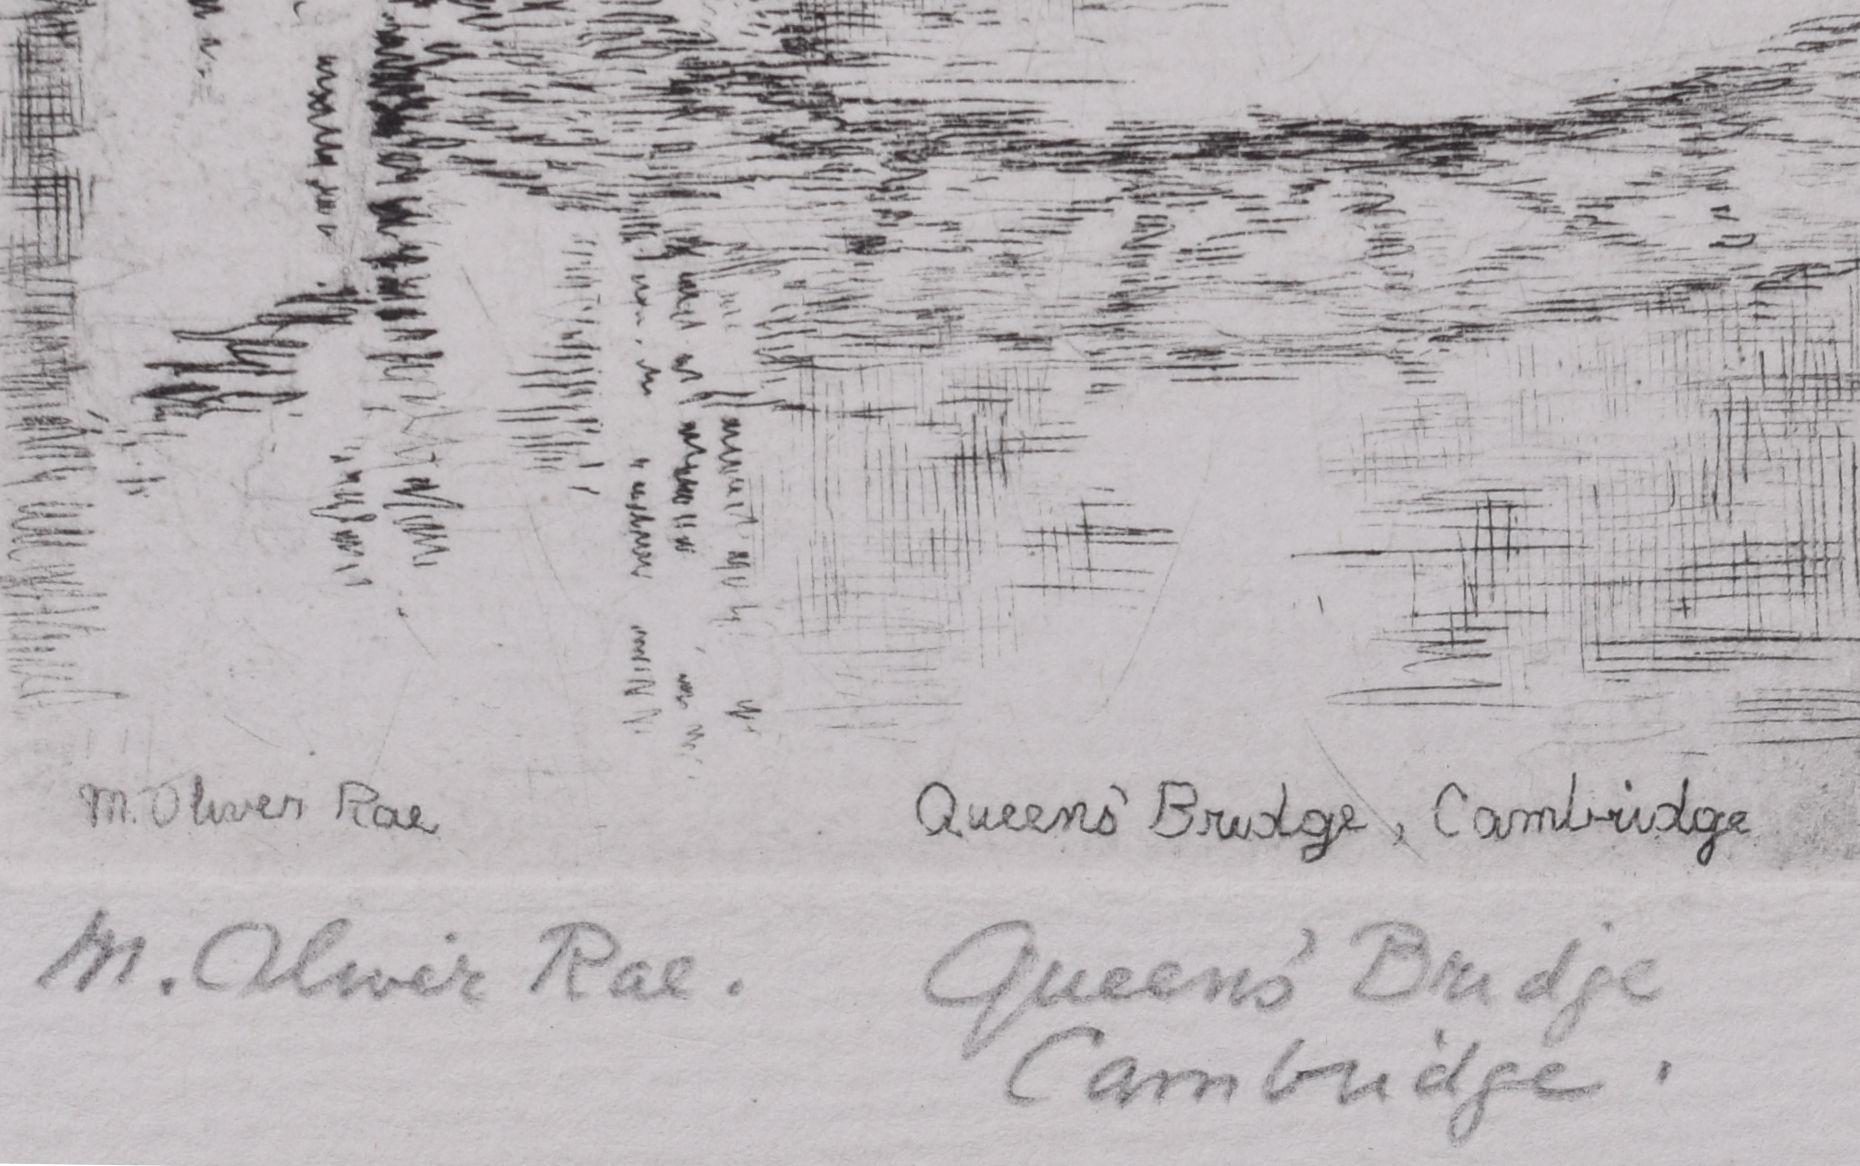 M. Oliver Rae
Queens' Bridge, Cambridge
M. Oliver Rae.
Queens' Bridge
Cambridge.